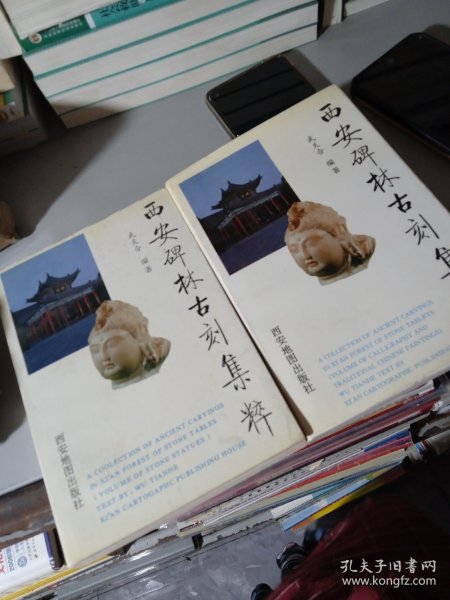 西安碑林古刻集粹
武天合 编著
A COOLECTION OF ANCIENT CARVINGS
IN XI'AN FOREST OF STONE TABLES
( VOLUME OF STONE STATUES )
TEXT BY: WU TIANHE
XI'AN CARTOGAPHIC PUBLISHING HOUSE
西安地图出版社
西安碑林古刻集
武天合 编著
A COLLECTION OF ANCIENT CARVINGS
IN XI'AN FOREST OF STONE TABLETS
(VOLUME OF CALLIGRAPHY AND
TRADITIONAL CHINESE PAINTINGS)
WU TIANHE TEXT BY
XI'AN CARTOGRAPHIC PUBLISHING
西安地图出版社
孔夫子旧书网
www.kongfz.com